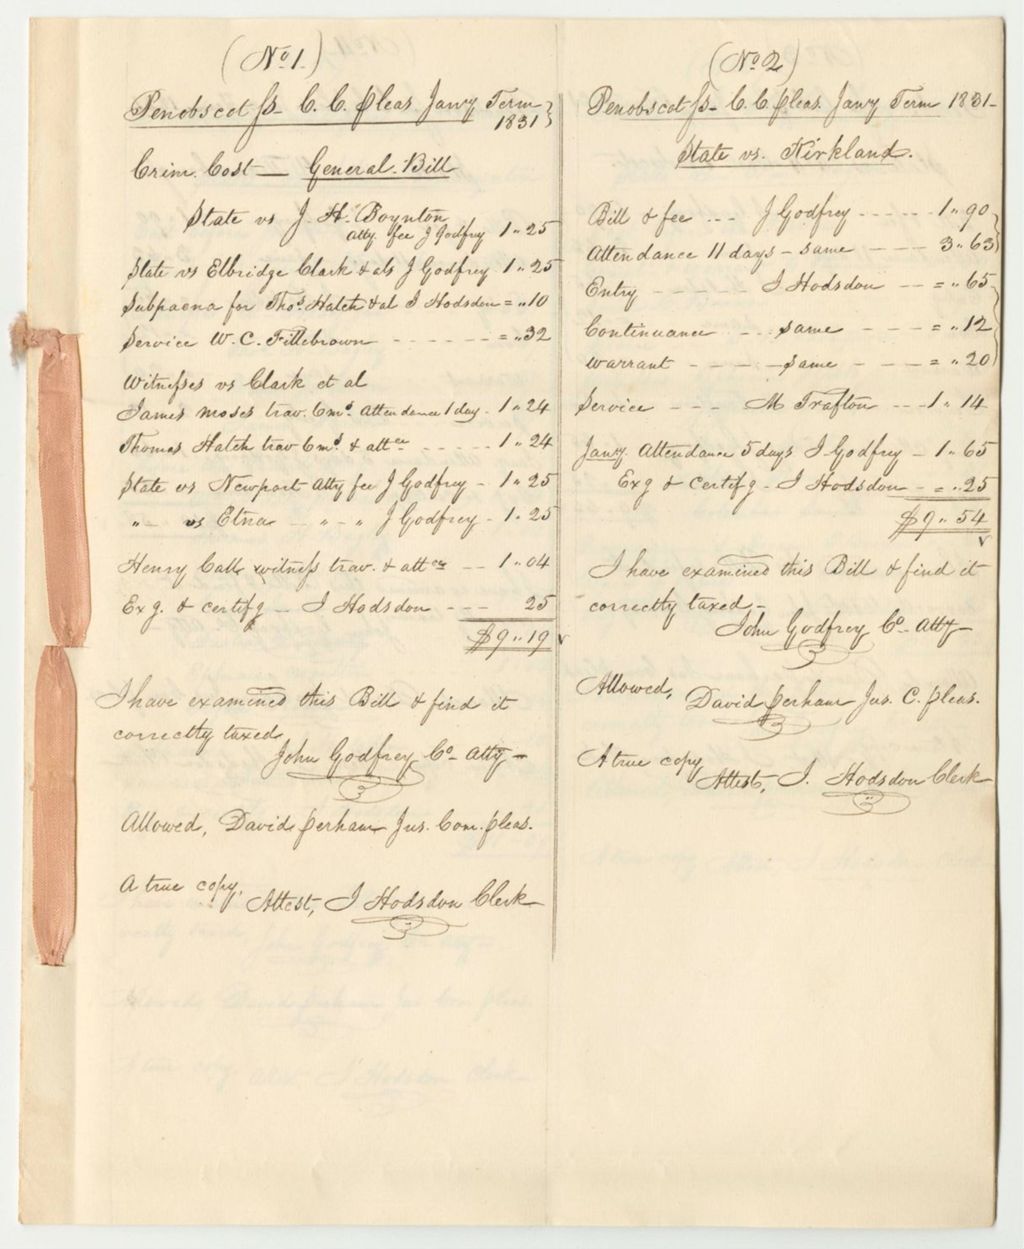 (No 1.)
Penobscot ss- C. C. Pleas. Jany Term }
1831 }
Crim. Cost — General Bill
State vs J. H. Boynton
Atty. fee J Godfrey 1 " 25
State vs Elbridge Clark & als J Godfrey 1 " 25
Subpaena for Thos. Hatch & al I Hodsdon = " 10
Service W. C. Fillebrown - - - - - - = " 32
Witnesses vs Clark et al
James Moses trav. 6ms. attendance 1 day - 1 " 24
Thomas Hatch trav 6ms & attce - - - - - 1 " 24
State vs Newport Atty fee J Godfrey - 1 " 25
" - vs Etna - " - " J Godfrey - 1 " 25
Henry Call witness trav. & attce -- 1 " 04
Exg. & certifg - I Hodsdon - - - 25
$9 " 19
I have examined this Bill & find it
correctly taxed
John Godfrey Co- Atty-
Allowed, David Perham Jus. Com. Pleas.
A true copy,
Attest, I Hodsdon Clerk
(No 2)
Penobscot ss- C. C. Pleas. Jany Term 1831-
State vs. Kirkland.
Bill & fee - - - J Godfrey - - - - - 1 " 90
Attendance 11 days - same - - - 3 " 63
Entry - - - - - I Hodsdon - - = " 65
Continuance - - - same - - - = " 12
Warrant - - - - same - - - = " 20
Service - - - M Trafton - - - 1 " 14
Jany. Attendance 5 days J Godfrey - 1 " 65
Exg & certifg - I Hodsdon - = " 25
$9 " 54
I have examined this Bill & find it
correctly taxed-
John Godfrey Co- Atty-
Allowed,
David Perham Jus. C. Pleas.
A true copy
Attest, I. Hodsdon Clerk